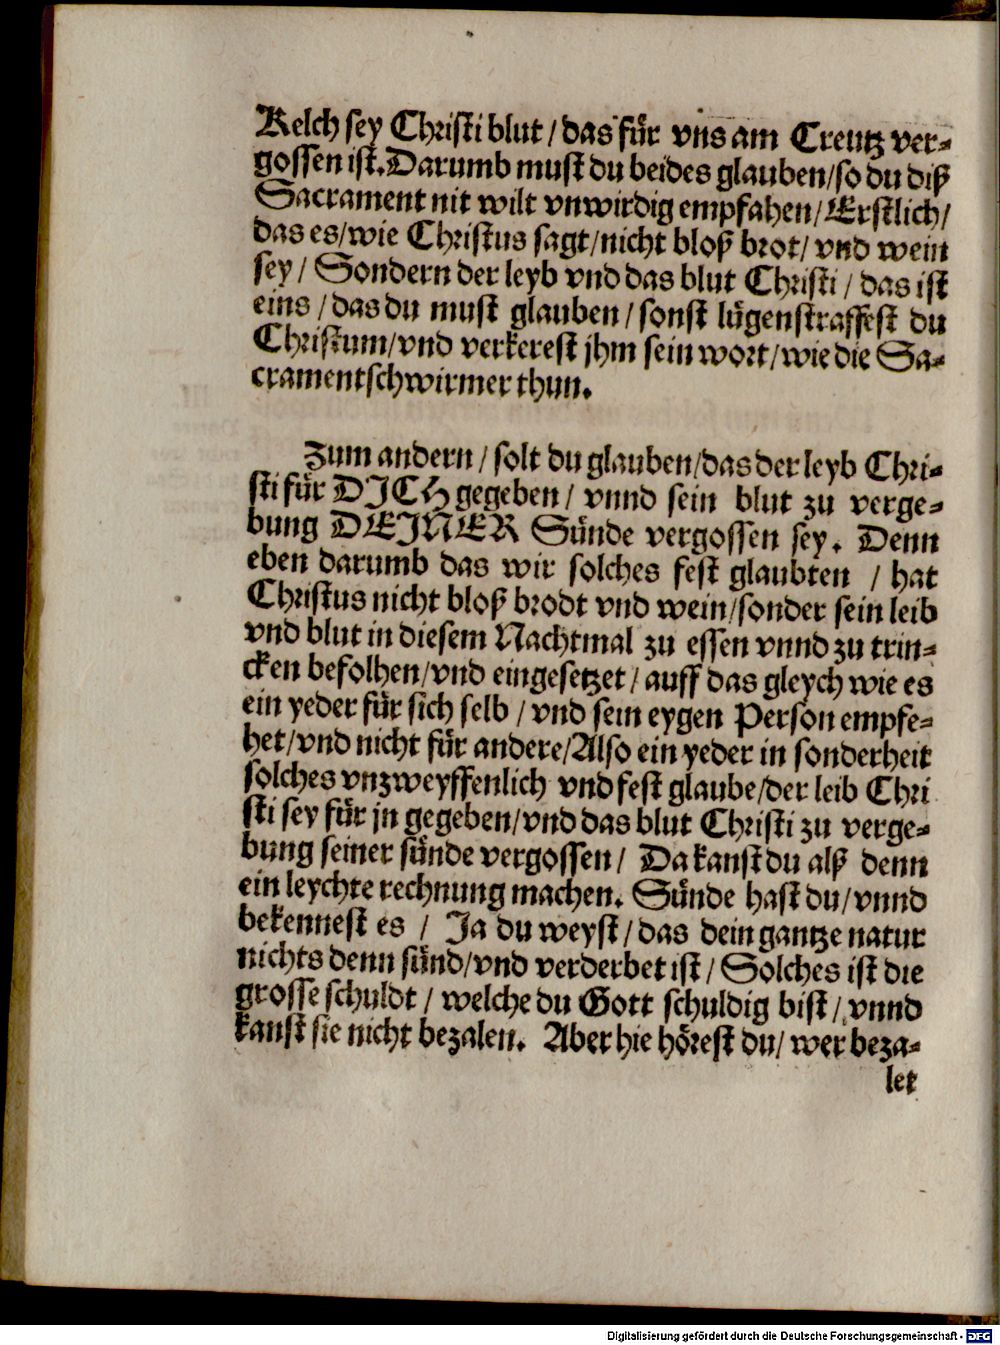 Kelch sey Christi blut / das für vns am Creutz ver-
gossen ist. Darumb must du beides glauben / so du diß
Sacrament nit wilt vnwirdig empfahen / Erstlich /
das es / wie Christus sagt / nicht bloß brot / vnd wein
sey / Sondern der leyb vnd das blut Christi / das ist
eins / das du must glauben / sonst lügenstraffest du
Christum / vnd verkerest jhm sein wort / wie die Sa-
cramentschwirmer thun.
Zum andern / solt du glauben / das der leyb Chri-
sti für DICH gegeben / vnnd sein blut zu verge-
bung DEINER Sünde vergossen sey. Denn
eben darumb das wir solches fest glaubten / hat
Christus nicht bloß brodt vnd wein / sonder sein leib
vnd blut in diesem Nachtmal zu essen vnnd zu trin-
cken befolhen / vnd eingesetzet / auff das gleych wie es
ein yeder für sich selb / vnd sein eygen Person empfe-
het / vnd nicht für andere / Also ein yeder in sonderheit
solches vnzweyffenlich vnd fest glaube / der leib Chri
sti sey für jn gegeben / vnd das blut Christi zu verge-
bung seiner sünde vergossen / Da kanst du alß denn
ein leychte rechnung machen. Sünde hast du / vnnd
bekennest es / Ja du weyst / das dein gantze natur
nichts denn sünd / vnd verderbet ist / Solches ist die
grosse schuldt / welche du Gott schuldig bist / vnnd
kanst sie nicht bezalen. Aber hie hörest du / wer beza-
let
Digitalisierung gefördert durch die Deutsche Forschungsgemeinschaft - DFG